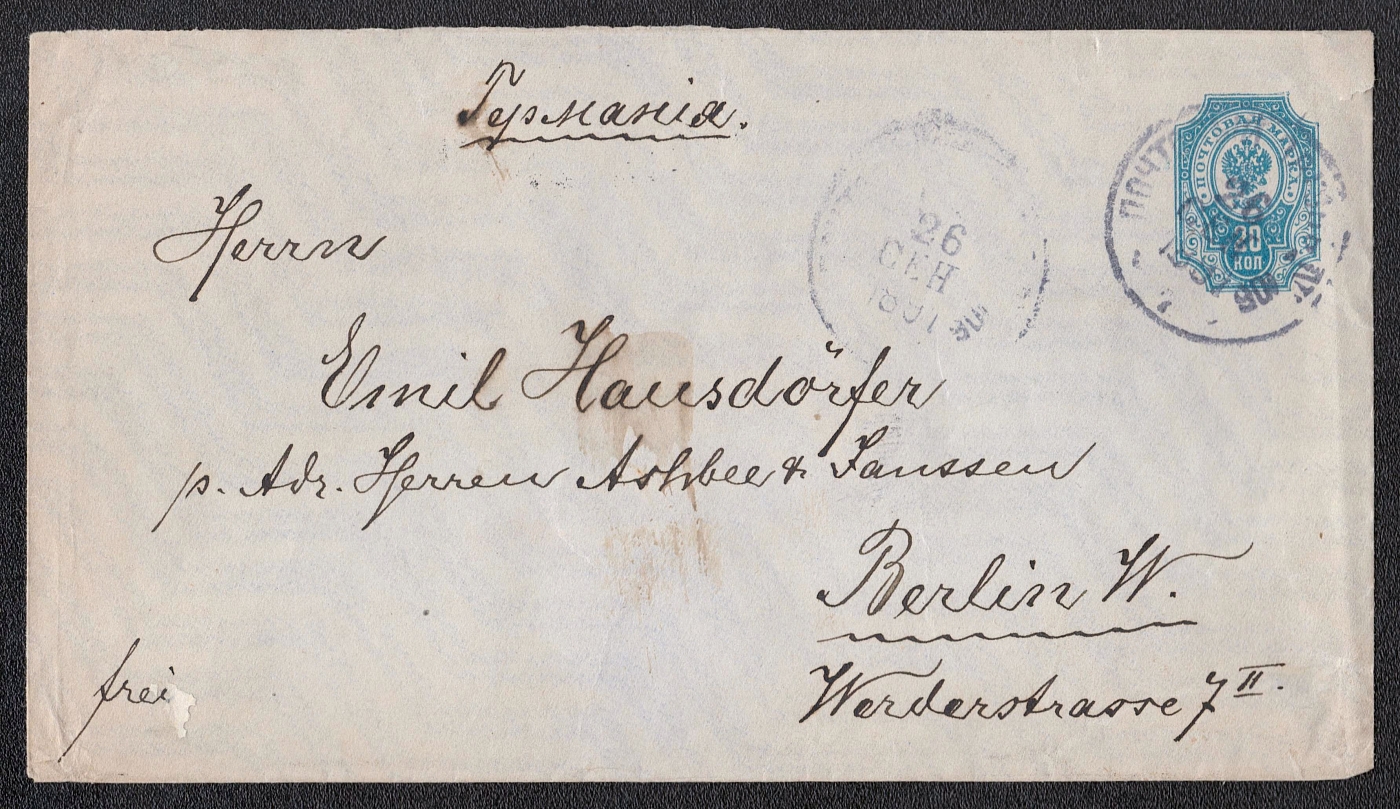 Германія.
ПОЧТОВАЯ МАРКА
20
КОП
26
СЕН
1891
Herrn
Emil Hausdörfer
p. Adr. Herren Ashbee & Janssen
Berlin W.
Werderstrasse 7 II.
frei